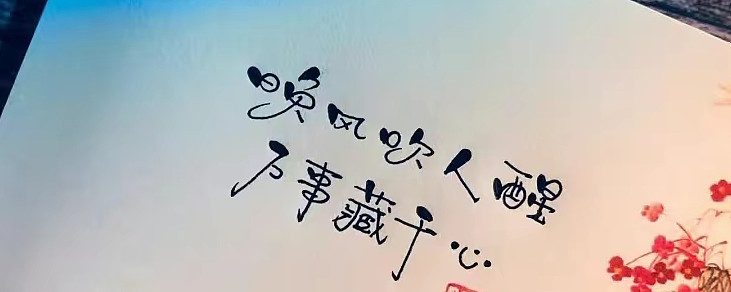 晚风吹人醒
万事藏于心